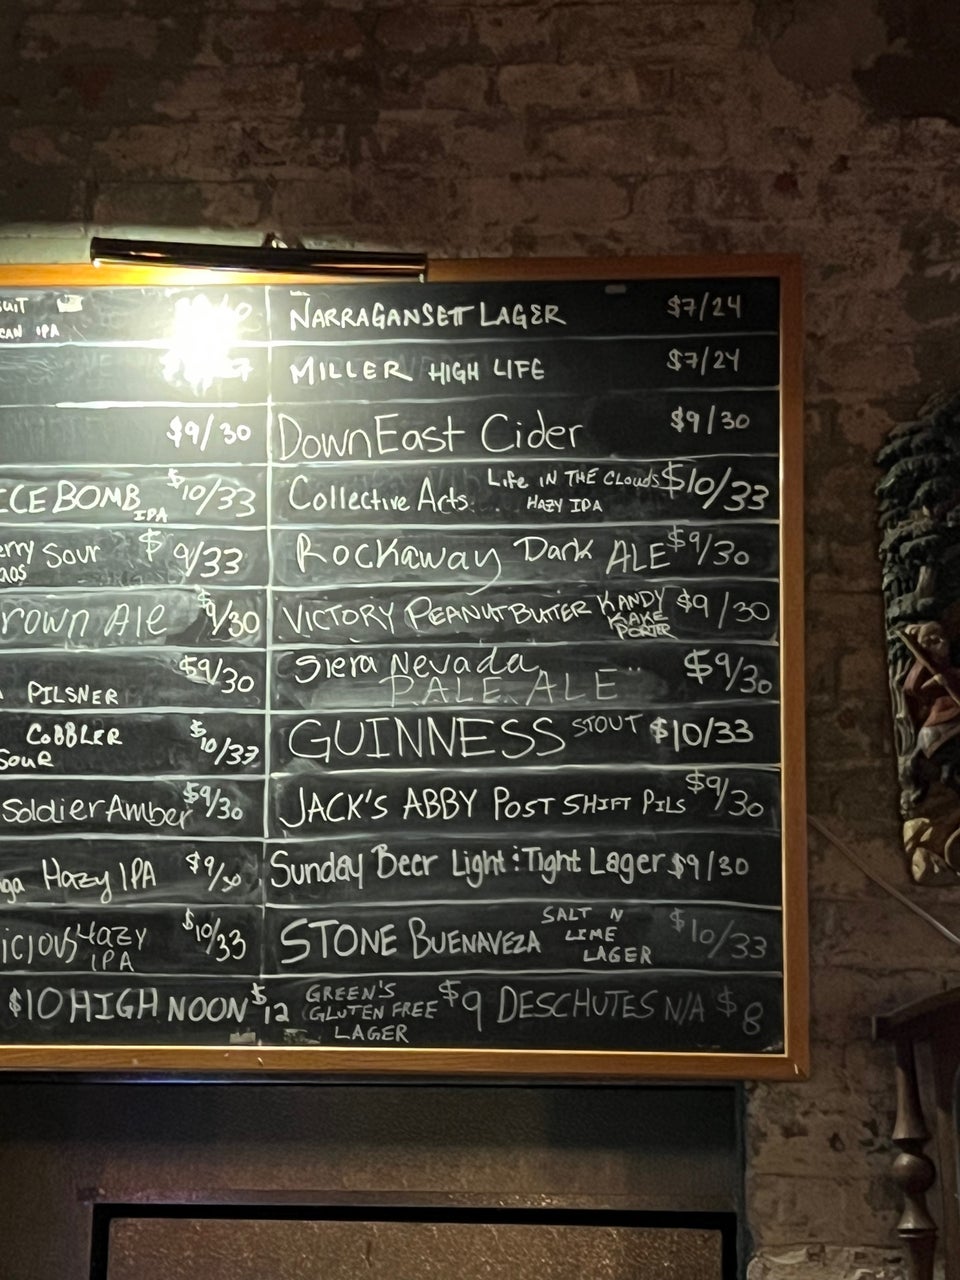 CAN IPA
NARRAGANSETT LAGER $7/24
MILLER HIGH LIFE $7/24
$9/30
DownEast Cider $9/30
ICE BOMB IPA $10/33
Collective Arts Life IN THE Clouds HAZY IPA $10/33
Sour $9/33
Rockaway Dark ALE $9/30
rown Ale $9/30
VICTORY PEANUT BUTTER KANDY KAKE PORTER $9/30
PILSNER $9/30
Siera Nevada PALE ALE $9/30
COBBLER SOUR $10/33
GUINNESS STOUT $10/33
Soldier Amber $9/30
JACK'S ABBY POST SHIFT PILS $9/30
Hazy IPA $9/30
Sunday Beer Light & Tight Lager $9/30
icious Hazy IPA $10/33
STONE BUENAVEZA SALT N LIME LAGER $10/33
$10 HIGH NOON $12 GREEN'S GLUTEN FREE LAGER $9 DESCHUTES N/A $8